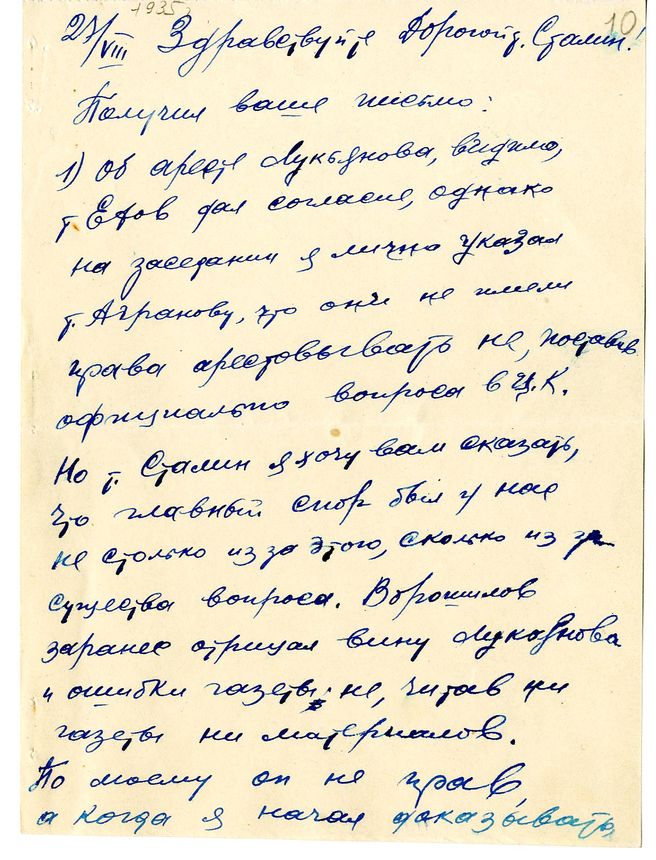 1935
10
27/VIII Здравствуйте Дорогой т. Сталин!
Получил ваше письмо:
1) Об аресте Лукьянова, видимо,
т. Ежов дал согласие, однако
на заседании я лично указал
т. Агранову, что они не имели
права арестовывать не, поставив
официально вопроса в Ц.К.
Но т. Сталин я хочу вам сказать,
что главный спор был у нас
не столько из за этого, сколько из за
существа вопроса. Ворошилов
заранее отрицал вину Лукьянова
и ошибки газеты не, читав ни
газеты ни материалов.
По моему он не прав,
а когда я начал доказывать,